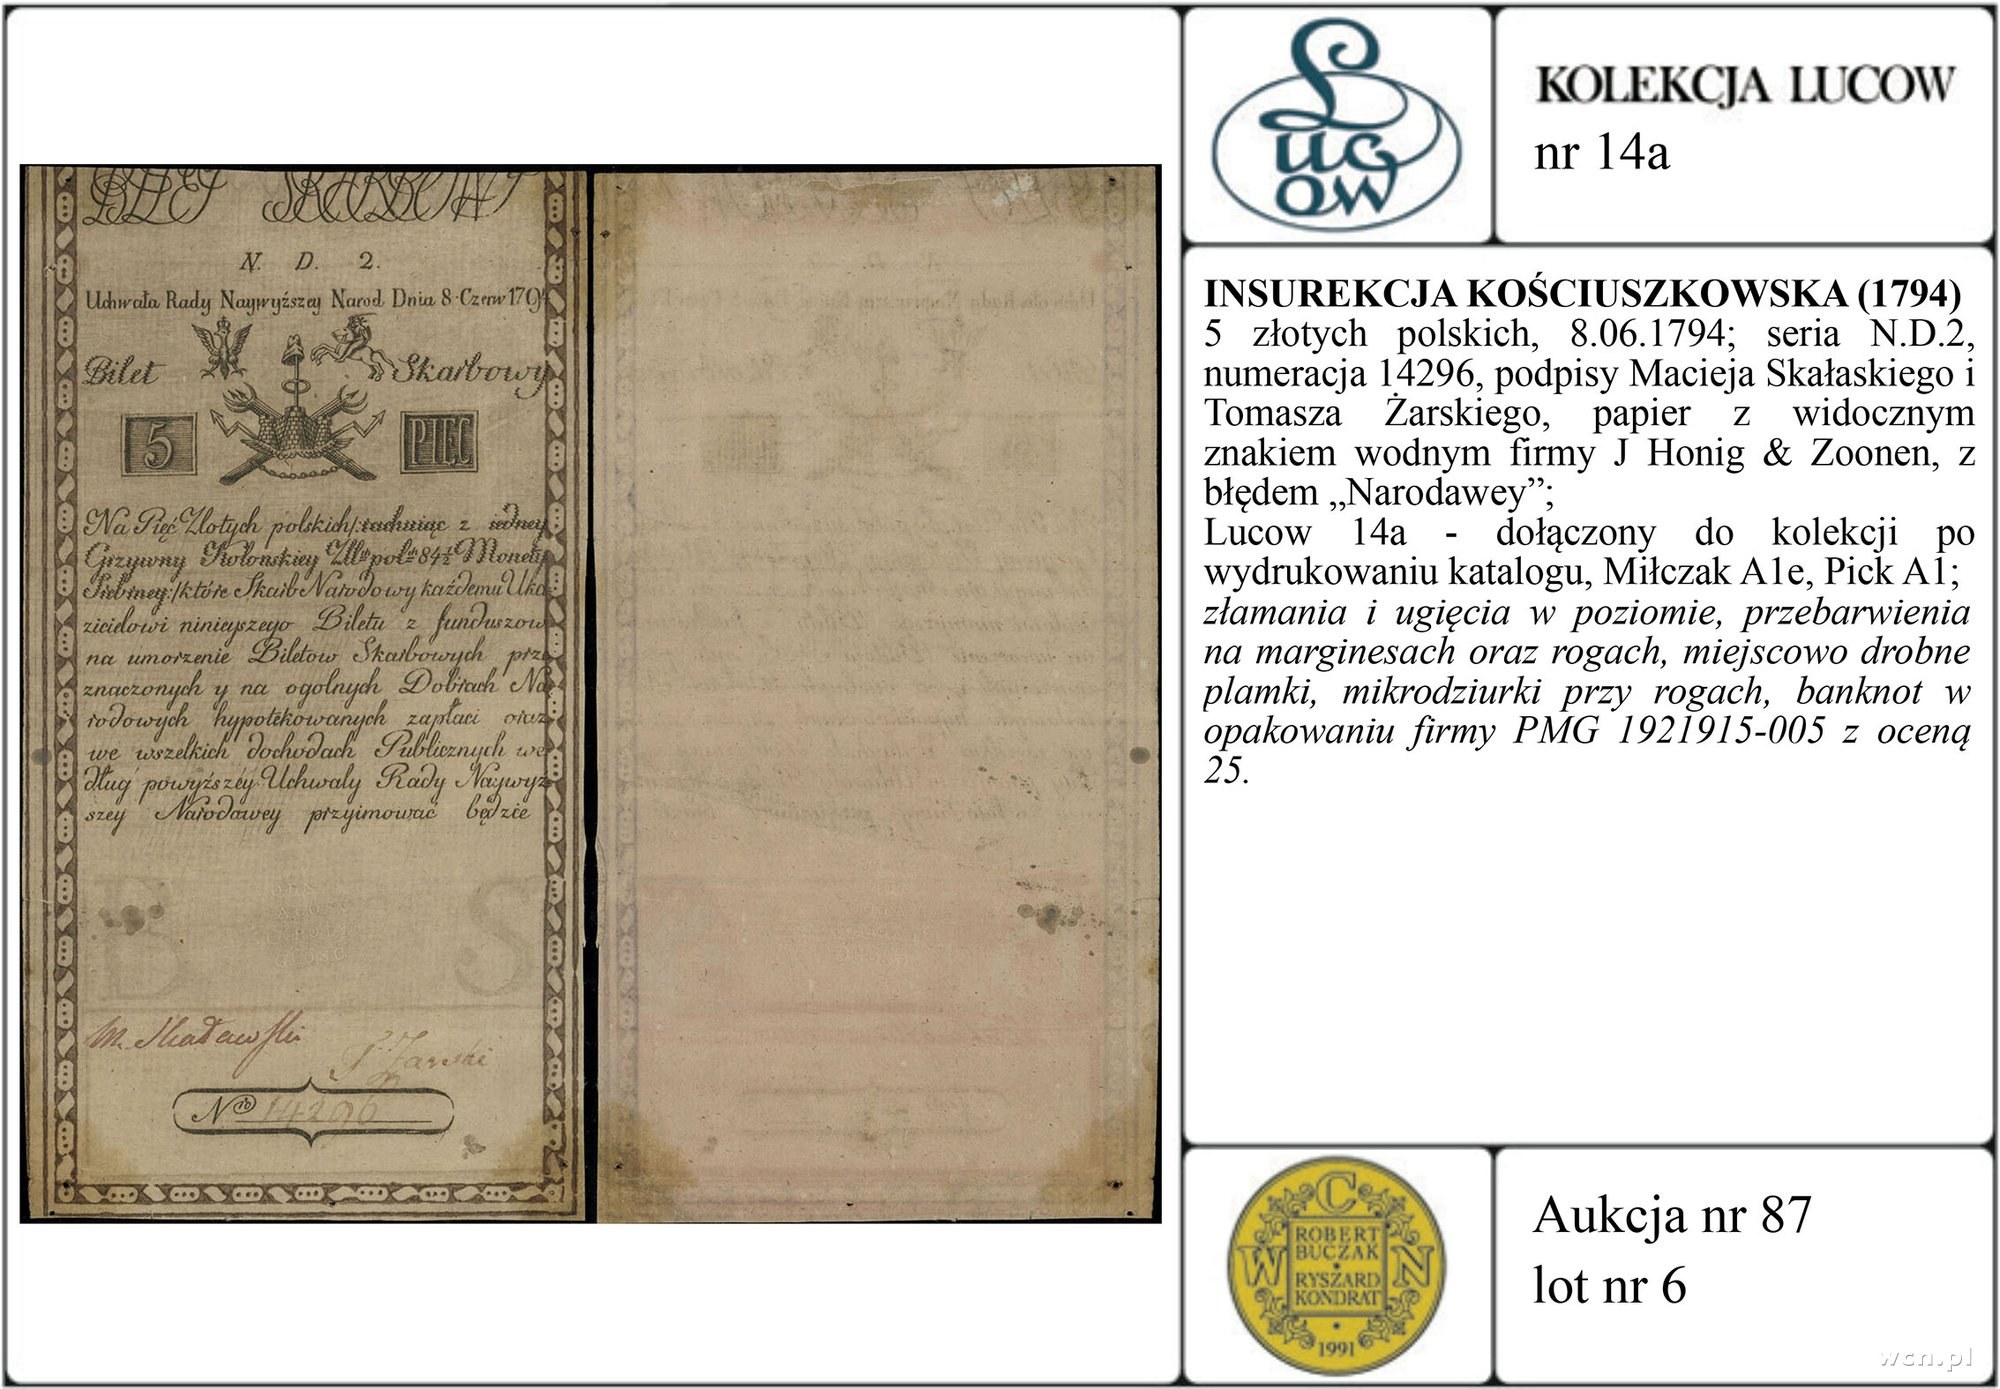 BILET SKARBOWY
N. D. 2.
Uchwała Rady Naywyższey Narod Dnia 8 Czerw 1794
Bilet Skarbowy
5 PIĘC
Na Pięć Złotych polskich/:rachuiąc z iedney
Grzywny Kolonskiey Zll: pol: 84½ Monety
Srebrney:/które Skarb Narodowy każdemu Uka
zicielowi ninieyszego Biletu z funduszow
na umorzenie Biletow Skarbowych prze
znaczonych y na ogolnych Dobrach Na
rodowych hypotekowanych zapłaci oraz
we wszelkich dochodach Publicznych we
dług powyższéy Uchwały Rady Naywyż
szey Narodawey przyimować będzie
B S
M. Skaławski
T Żarski
No 14296
Lucow
KOLEKCJA LUCOW
nr 14a
INSUREKCJA KOŚCIUSZKOWSKA (1794)
5 złotych polskich, 8.06.1794; seria N.D.2,
numeracja 14296, podpisy Macieja Skałaskiego i
Tomasza Żarskiego, papier z widocznym
znakiem wodnym firmy J Honig & Zoonen, z
błędem „Narodawey”;
Lucow 14a - dołączony do kolekcji po
wydrukowaniu katalogu, Miłczak A1e, Pick A1;
złamania i ugięcia w poziomie, przebarwienia
na marginesach oraz rogach, miejscowo drobne
plamki, mikrodziurki przy rogach, banknot w
opakowaniu firmy PMG 1921915-005 z oceną
25.
WCN
ROBERT
BUCZAK
RYSZARD
KONDRAT
1991
Aukcja nr 87
lot nr 6
wcn.pl